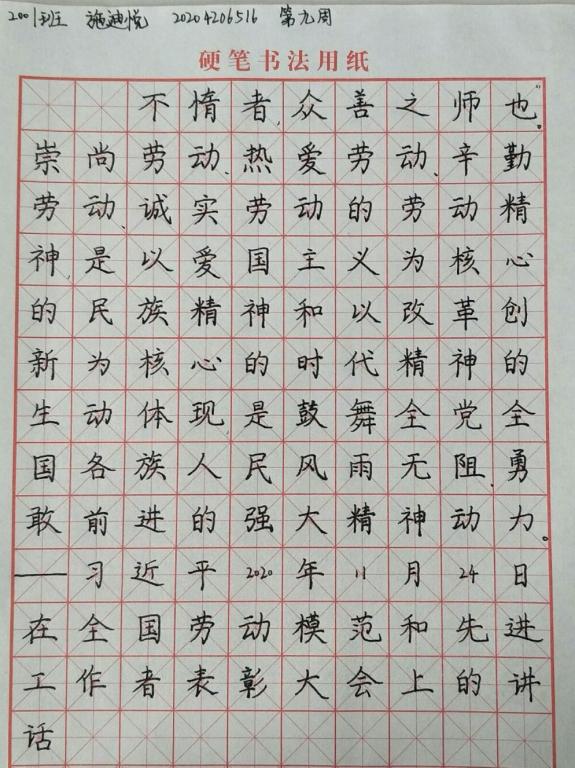 2001班 施迪悦 20204206516 第九周
硬笔书法用纸
不惰者,众善之师也。"
崇尚劳动、热爱劳动、辛勤
劳动、诚实劳动的劳动精
神,是以爱国主义为核心
的民族精神和以改革创
新为核心的时代精神的
生动体现,是鼓舞全党全
国各族人民风雨无阻、勇
敢前进的强大精神动力。
——习近平2020年11月24日
在全国劳动模范和先进
工作者表彰大会上的讲
话